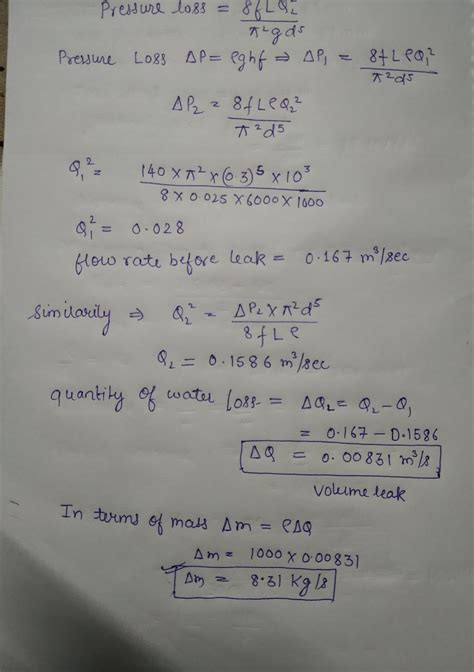 Pressure loss = 8fLQ₂² / π²gd⁵
Pressure Loss ΔP = ρghf ⇒ ΔP₁ = 8fLρQ₁² / π²d⁵
ΔP₂ = 8fLρQ₂² / π²d⁵
Q₁² = 140 × π² × (0.3)⁵ × 10³ / 8 × 0.025 × 6000 × 1000
Q₁² = 0.028
flow rate before leak = 0.167 m³/sec
Similarily ⇒ Q₂² = ΔP₂ × π²d⁵ / 8fLρ
Q₂ = 0.1586 m³/sec
quantity of water loss = ΔQ₂ = Q₂ - Q₁
= 0.167 - 0.1586
ΔQ = 0.00831 m³/s
volume leak
In terms of mass Δm = ρΔQ
Δm = 1000 × 0.00831
Δm = 8.31 kg/s